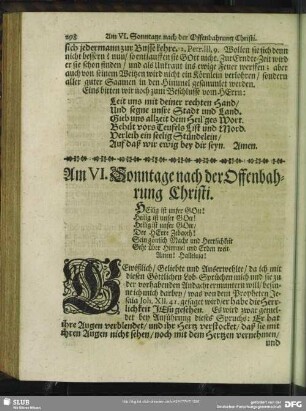 298 Am VI. Sonntage nach der Offenbahrung Christi.
sich jedermann zur Busse kehre, 2. Petr. III, 9. Wollen sie sich denn
nicht bessern nun/ so entlauffen sie GOtt nicht. Zur Erndte-Zeit wird
er sie schon finden/ und als Unkraut ins ewige Feuer werffen: aber
auch von seinem Weitzen wird nicht ein Körnlein verlohren/ sondern
aller guter Saamen in den Himmel gesammlet werden.
Eins bitten wir noch zum Beschlusse vom HErrn:
Leit uns mit deiner rechten Hand/
Und segne unser Stadt und Land.
Gieb uns allzeit dein heilges Wort.
Behüt vors Teufels List und Mord.
Verleih ein seelig Stündelein/
Auf daß wir ewig bey dir seyn. Amen.
Am VI. Sonntage nach der Offenbah-
rung Christi.
HEilig ist unser GOtt!
Heilig ist unser GOtt/
Heilig ist unser GOtt/
Der HErre Zebaoth!
Sein göttlich Macht und Herrlichkeit
Geht über Himmel und Erden weit
Amen! Halleluja!
GEwißlich/ Geliebte und Auserwehlte/ da ich mit
diesen Göttlichen Lob-Sprüchen mich und sie zu
der vorhabenden Andacht ermuntern will/ besin-
ne ich mich darbey/ was von dem Propheten Je-
saia Joh. XII. 41. gesaget wird/ er habe die Herr-
lichkeit JESU gesehen. Es wird zwar gemel-
det bey Anführung dieses Spruchs: Er hat
ihre Augen verblendet/ und ihr Hertz verstocket/ daß sie mit
ihren Augen nicht sehen/ noch mit dem Hertzen vernehmen/
und